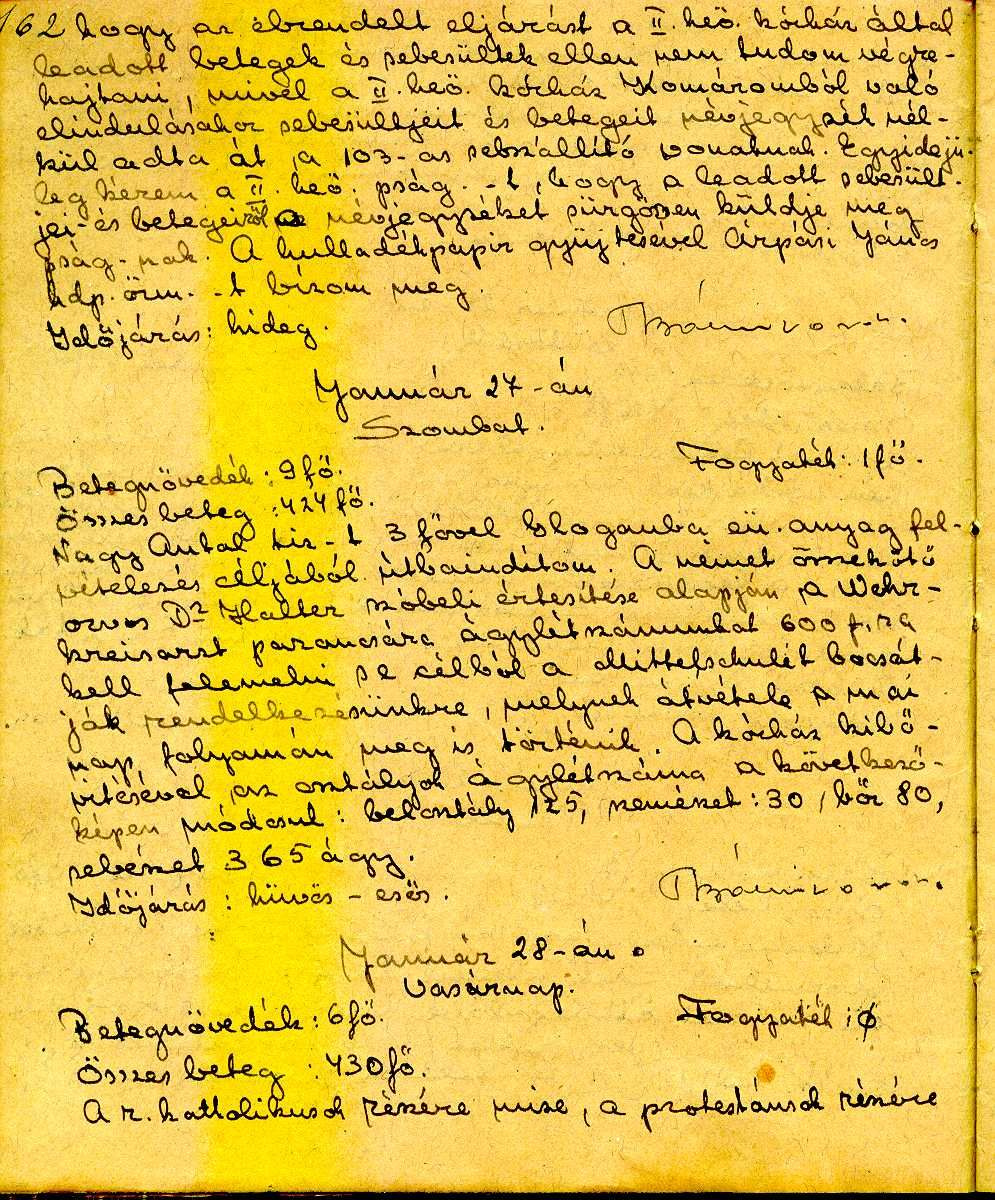 162 hogy az elrendelt eljárást a II. heü. kórház által
leadott betegek és sebesültek ellen nem tudom végre-
hajtani, mivel a II. heü. kórház Komáromból való
elindulásakor sebesültjeit és betegeit névjegyzék nél-
kül adta át a 103-as sebszállító vonatnak. Egyidejü-
leg kérem a II. heü. pság. -t, hogy a leadott sebesült-
jei- és betegeiről a névjegyzéket sürgősen küldje meg
pság-nak. A hulladékpapir gyüjtésével Árpási János
hdp. őrm. -t bízom meg.
Időjárás: hideg.
Január 27-án
Szombat.
Betegnövedék: 9 fő.
Fogyaték: 1 fő.
Összes beteg: 424 fő.
Nagy Antal tiz-t 3 fővel Glogauba eü. anyag fel-
vételezés céljából útbaindítom. A német összekötő
orvos Dr Halter szóbeli értesítése alapján, a Wehr-
kreisarzt parancsára ágylétszámunkat 600 f.-ra
kell felemelni s e célból a Mittelschulét bocsát-
ják rendelkezésünkre, melynek átvétele a mai
nap folyamán meg is történik. A kórház kibő-
vitésével az osztályok ágylétszáma a következő-
képen módosul: belosztály 125, szemészet: 30, bőr 80,
sebészet 365 ágy.
Időjárás: hüvös - esős.
Január 28-án.
Vasárnap.
Betegnövedék: 6 fő.
Fogyaték: ø
Összes beteg: 430 fő.
A r. kattolikusok részére mise, a protestánsok részére